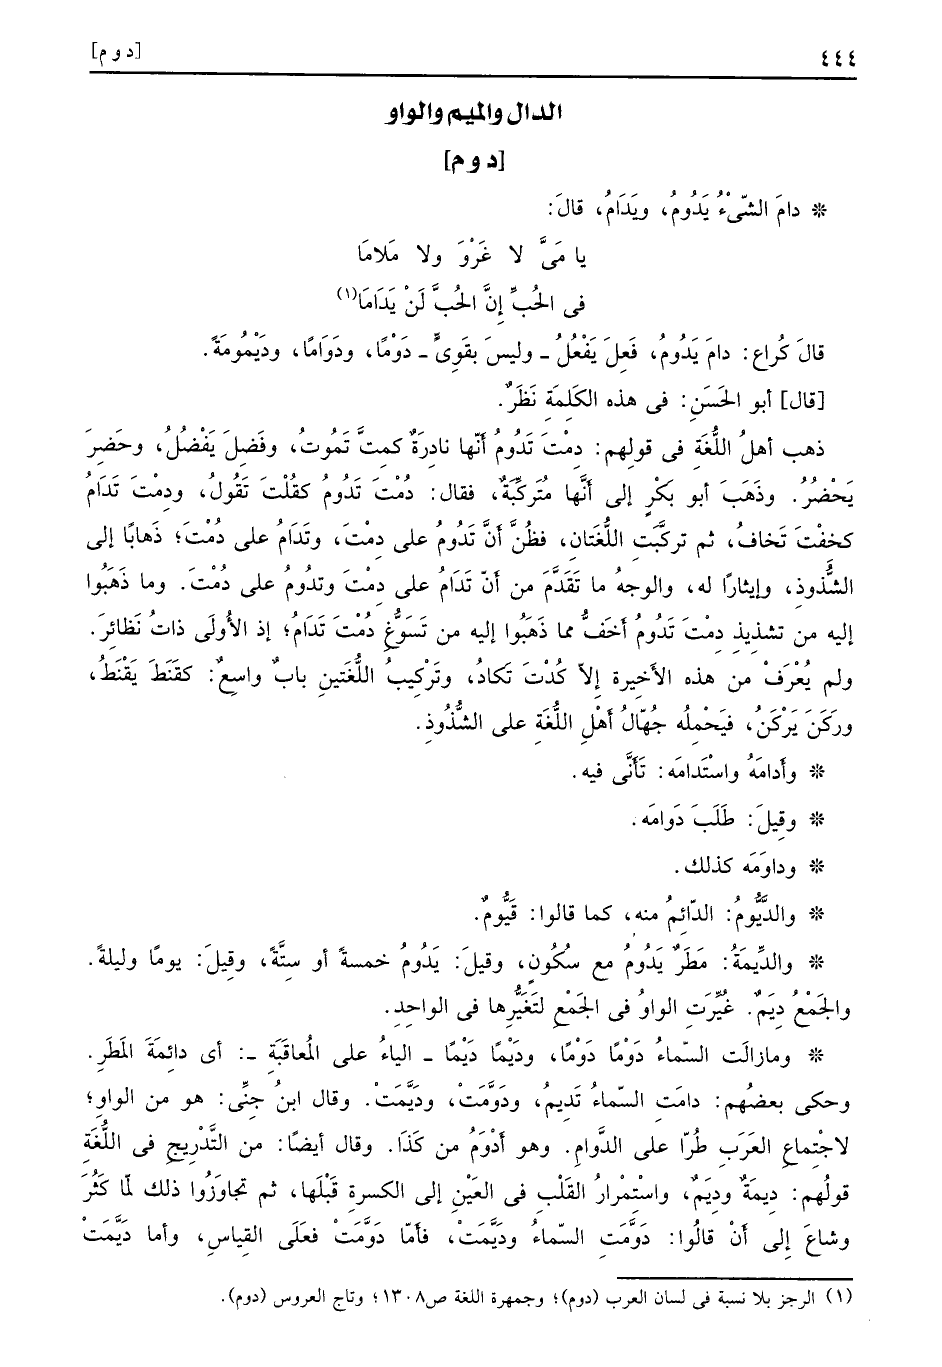 ٤٤٤
[د و م]
الدال والميم والواو
[د و م]
* دامَ الشّىْءُ يَدُومُ، ويَدَامُ، قالَ:
يا مَىَّ لا غَرْوَ ولا مَلامَا
فى الحُبِّ إنَّ الحُبَّ لَنْ يَدَامَا(١)
قالَ كُراع: دامَ يَدُومُ، فَعلَ يَفْعُلُ ـ وليسَ بقَوىٍّ ـ دَوْمًا، ودَوَامًا، ودَيْمُومَةً.
[قال] أبو الحَسَنِ: فى هذه الكَلمَة نَظَرٌ.
ذهب أهلُ اللُّغَة فى قولهم: دمْتَ تَدُومُ أنّها نادرَةٌ كمتَّ تَموتُ، وفَضلَ يَفْضُلُ، وحَضرَ
يَحْضُرُ. وذَهَبَ أبو بكْرٍ إلى أنَّها مُتَركّبَةٌ، فقال: دُمْتَ تَدُومُ كقُلْتَ تَقُولُ، ودمْتَ تَدَامُ
كخفْتَ تَخافُ، ثم تركبَّتِ اللُّغَتان، فظُنَّ أنَّ تَدُومُ على دمْتَ، وتَدَامُ على دُمْتَ؛ ذهابًا إلى
الشُّذوذ، وإيثارًا له، والوجهُ ما تَقَدَّمَ من أنّ تَدَامُ على دمْتَ وتدُومُ على دُمْتَ. وما ذَهَبُوا
إليه من تشذيذ دمْتَ تَدُومُ أخَفُّ مما ذَهَبُوا إليه من تَسَوُّغِ دُمْتَ تَدَامُ؛ إذ الأُولَى ذاتُ نَظائرَ.
ولم يُعْرَفْ من هذه الأخيرة إلاّ كُدْتَ تَكادُ، وتَرْكيبُ اللُّغَتينِ بابٌ واسعٌ: كقَنَطَ يَقْنَطُ،
وركَنَ يَرْكَنُ، فيَحْملُه جُهّالُ أهْلِ اللُّغَة على الشُّذُوذِ.
* وأدامَهُ واسْتَدامَه: تَأَنَّى فيه.
* وقيلَ: طَلَبَ دَوامَه.
* وداوَمَه كذلك.
* والدَّيُّومُ: الدّائمُ منه، كما قالوا: قَيُّومٌ.
* والدِّيمَةُ: مَطَرٌ يَدُومُ مع سُكُونٍ، وقيلَ: يَدُومُ خمسةً أو ستَّةً، وقيلَ: يومًا وليلةً.
والجَمْعُ ديَمٌ. غُيِّرَت الواوُ فى الجَمْعِ لتَغَيُّرِها فى الواحِدِ.
* ومازالَت السّماءُ دَوْمًا دَوْمًا، ودَيْمًا دَيْمًا ـ الياءُ على المُعاقَبَة ـ: أى دائمَةَ المَطَرِ.
وحكى بعضُهم: دامَت السّماءُ تَديمُ، ودَوَّمَتْ، ودَيَّمَتْ. وقال ابنُ جنِّى: هو من الواو؛
لاجْتماعِ العَرَبِ طُرّا على الدَّوامِ. وهو أدْوَمُ من كَذَا. وقال أيضًا: من التَّدْريجِ فى اللُّغَة
قولُهم: ديمَةٌ وديَمٌ، واسْتمْرارُ القَلْب فى العَيْنِ إلى الكسرة قَبْلَها، ثم تجاوَزُوا ذلك لمّا كَثُرَ
وشاعَ إلى أنْ قالُوا: دَوَّمَتِ السّماءُ ودَيَّمَتْ، فأمّا دَوَّمَتْ فعَلَى القياسِ، وأما دَيَّمَتْ
(١) الرجز بلا نسبة فى لسان العرب (دوم)؛ وجمهرة اللغة ص١٣٠٨؛ وتاج العروس (دوم).